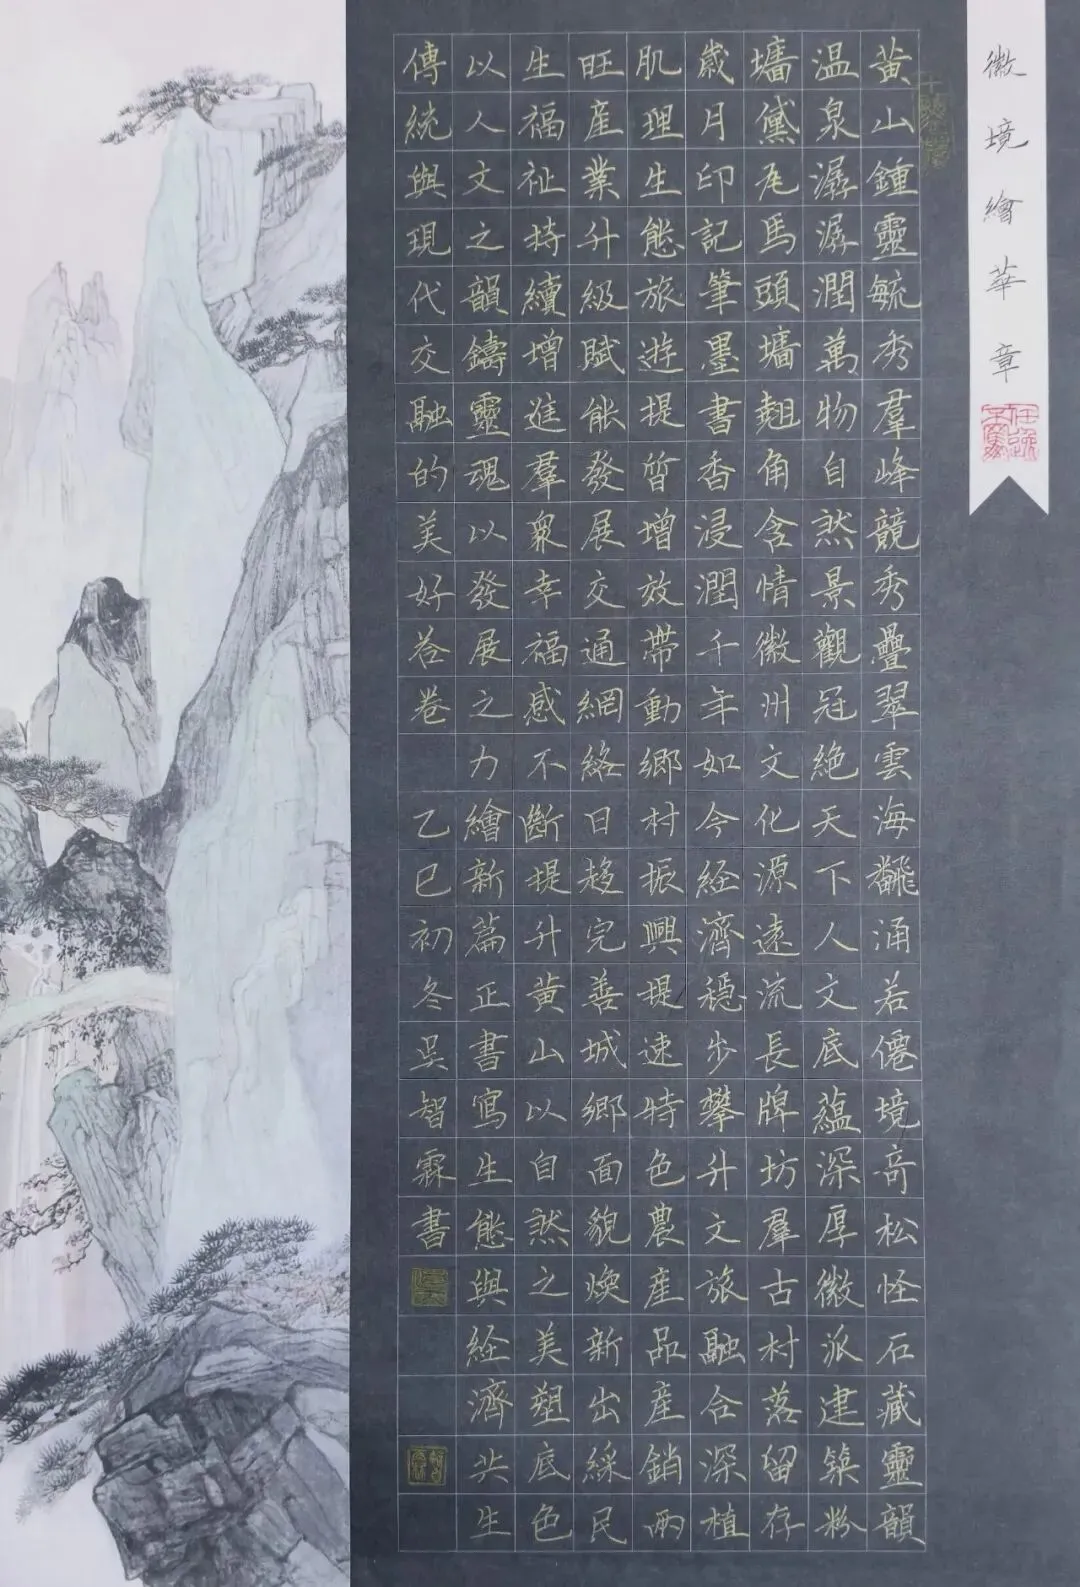 徽境繪華章
黃山鍾靈毓秀羣峰競秀疊翠雲海翻涌若僊境奇松怪石藏靈韻
温泉潺潺潤萬物自然景觀冠絶天下人文底蘊深厚徽派建築粉
墻黛瓦馬頭墻翹角含情徽州文化源遠流長牌坊羣古村落留存
歲月印記筆墨書香浸潤千年如今経濟穩步攀升文旅融合深植
肌理生態旅遊提質增效帶動鄉村振興提速特色農產品產銷兩
旺產業升級賦能發展交通網絡日趨完善城鄉面貌煥新出綵民
生福祉持續增進羣衆幸福感不斷提升黃山以自然之美塑底色
以人文之韻鑄靈魂以發展之力繪新篇正書寫生態與経濟共生
傳統與現代交融的美好答卷 乙巳初冬吴智霖書